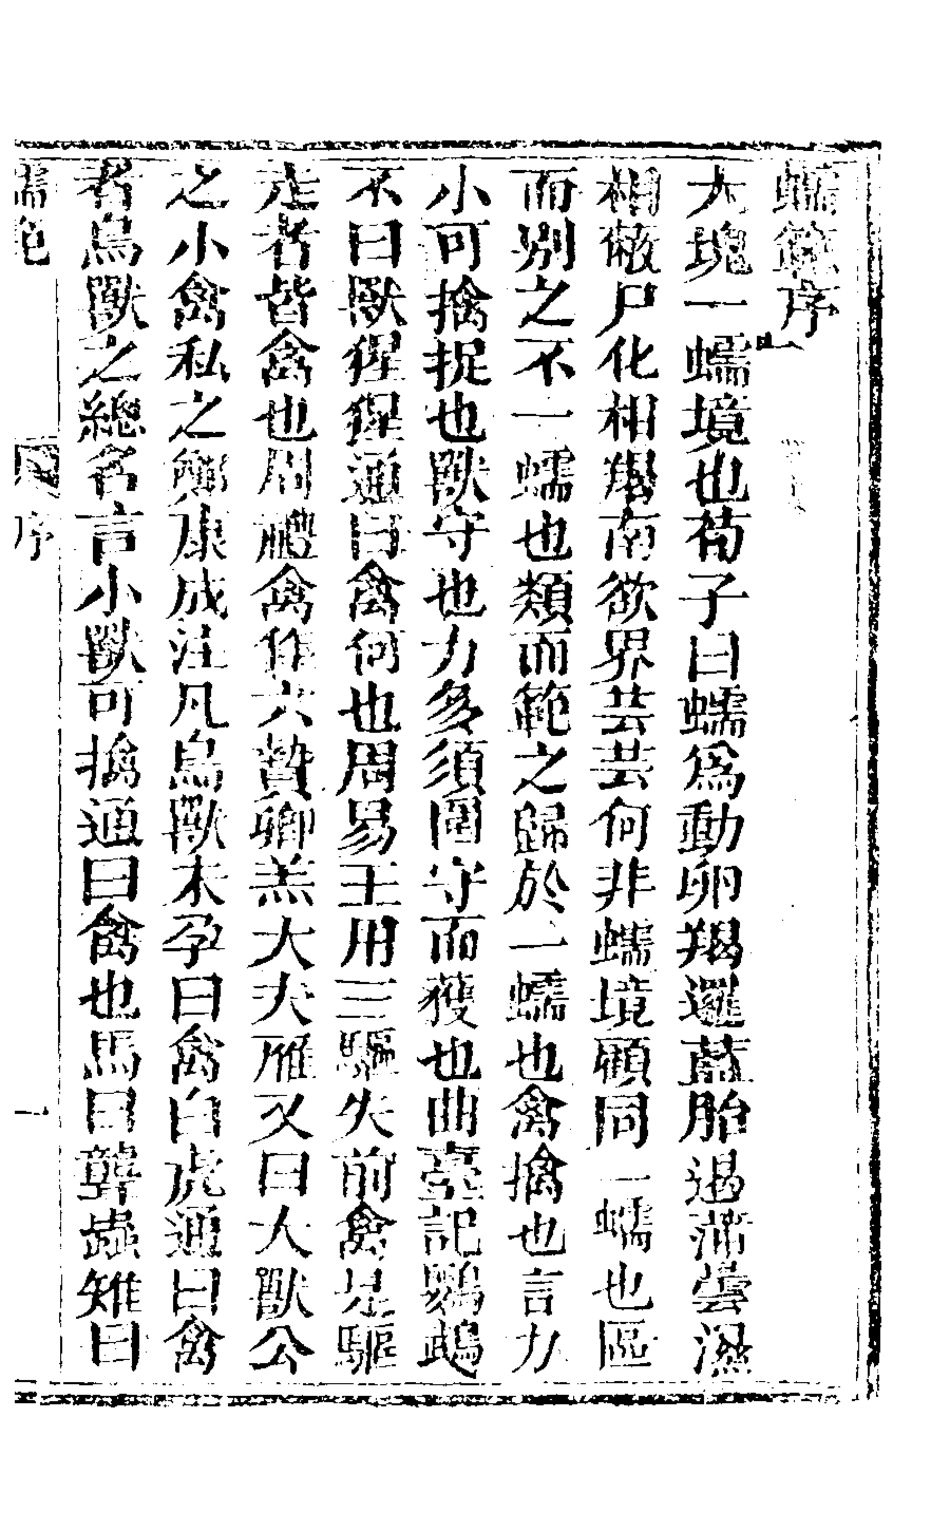 蠕範序
大塊一蠕境也荀子曰蠕爲動卵羯邏藍胎遏蒲曇濕
相蔽尸化相羯南欲界芸芸何非蠕境顧同一蠕也區
而別之不一蠕也類而範之歸於一蠕也禽擒也言力
小可擒捉也獸守也力多須圍守而獲也曲臺記鸚鵡
不曰獸猩猩通曰禽何也周易王用三驅失前禽是驅
走者皆禽也周禮禽作六贄卿羔大夫雁又曰大獸公
之小禽私之鄭康成注凡鳥獸未孕曰禽白虎通曰禽
者鳥獸之總名言小獸可擒通曰禽也馬曰聾蟲雉曰
蠕範
序
一